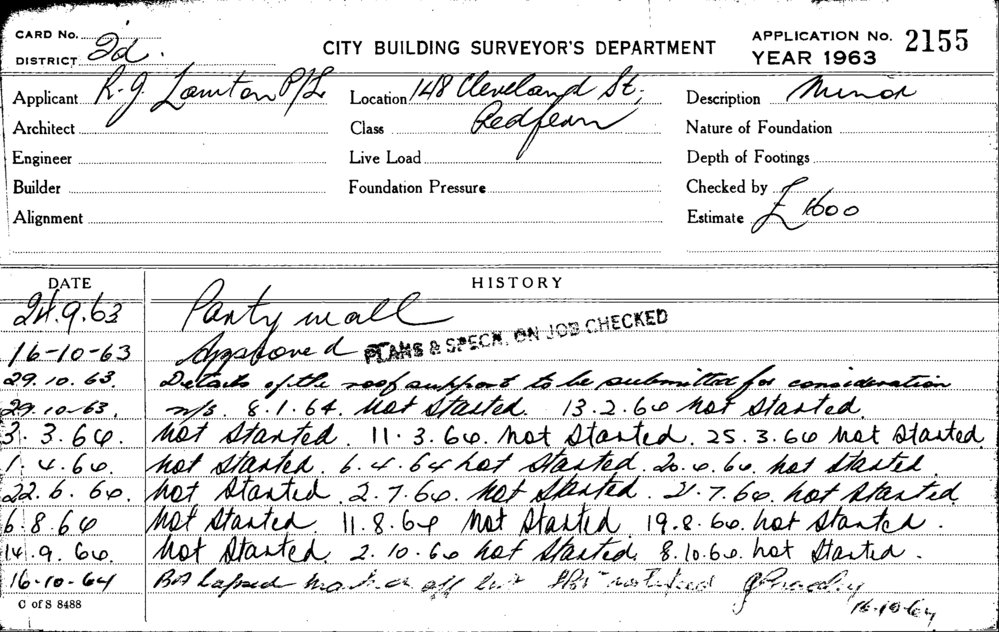 CARD No.
DISTRICT 2d.
CITY BUILDING SURVEYOR'S DEPARTMENT
APPLICATION No. 2155
YEAR 1963
Applicant R. J. P/L Location 148 Cleveland St; Description Minor
Architect Class Redfern Nature of Foundation
Engineer Live Load Depth of Footings
Builder Foundation Pressure Checked by
Alignment Estimate £ 1600
DATE HISTORY
24.9.63 Party wall
16-10-63 Approved PLANS & SPECN. ON JOB CHECKED
29.10.63. Details of the roof support to be submitted for consideration
29.10.63. n/s. 8.1.64. Not Started. 13.2.64 not started.
3.3.64. Not Started. 11.3.64. Not Started. 25.3.64 Not Started
1.4.64. Not Started. 6.4.64 not Started. 20.4.64. not started.
22.6.64. Not Started. 2.7.64. Not Started. 2.7.64. not started
6.8.64 Not Started. 11.8.64 Not Started. 19.8.64. not started.
14.9.64. Not Started. 2.10.64 not started. 8.10.64. not Started.
16-10-64 lapsed off
16-10-64
C of S 8488